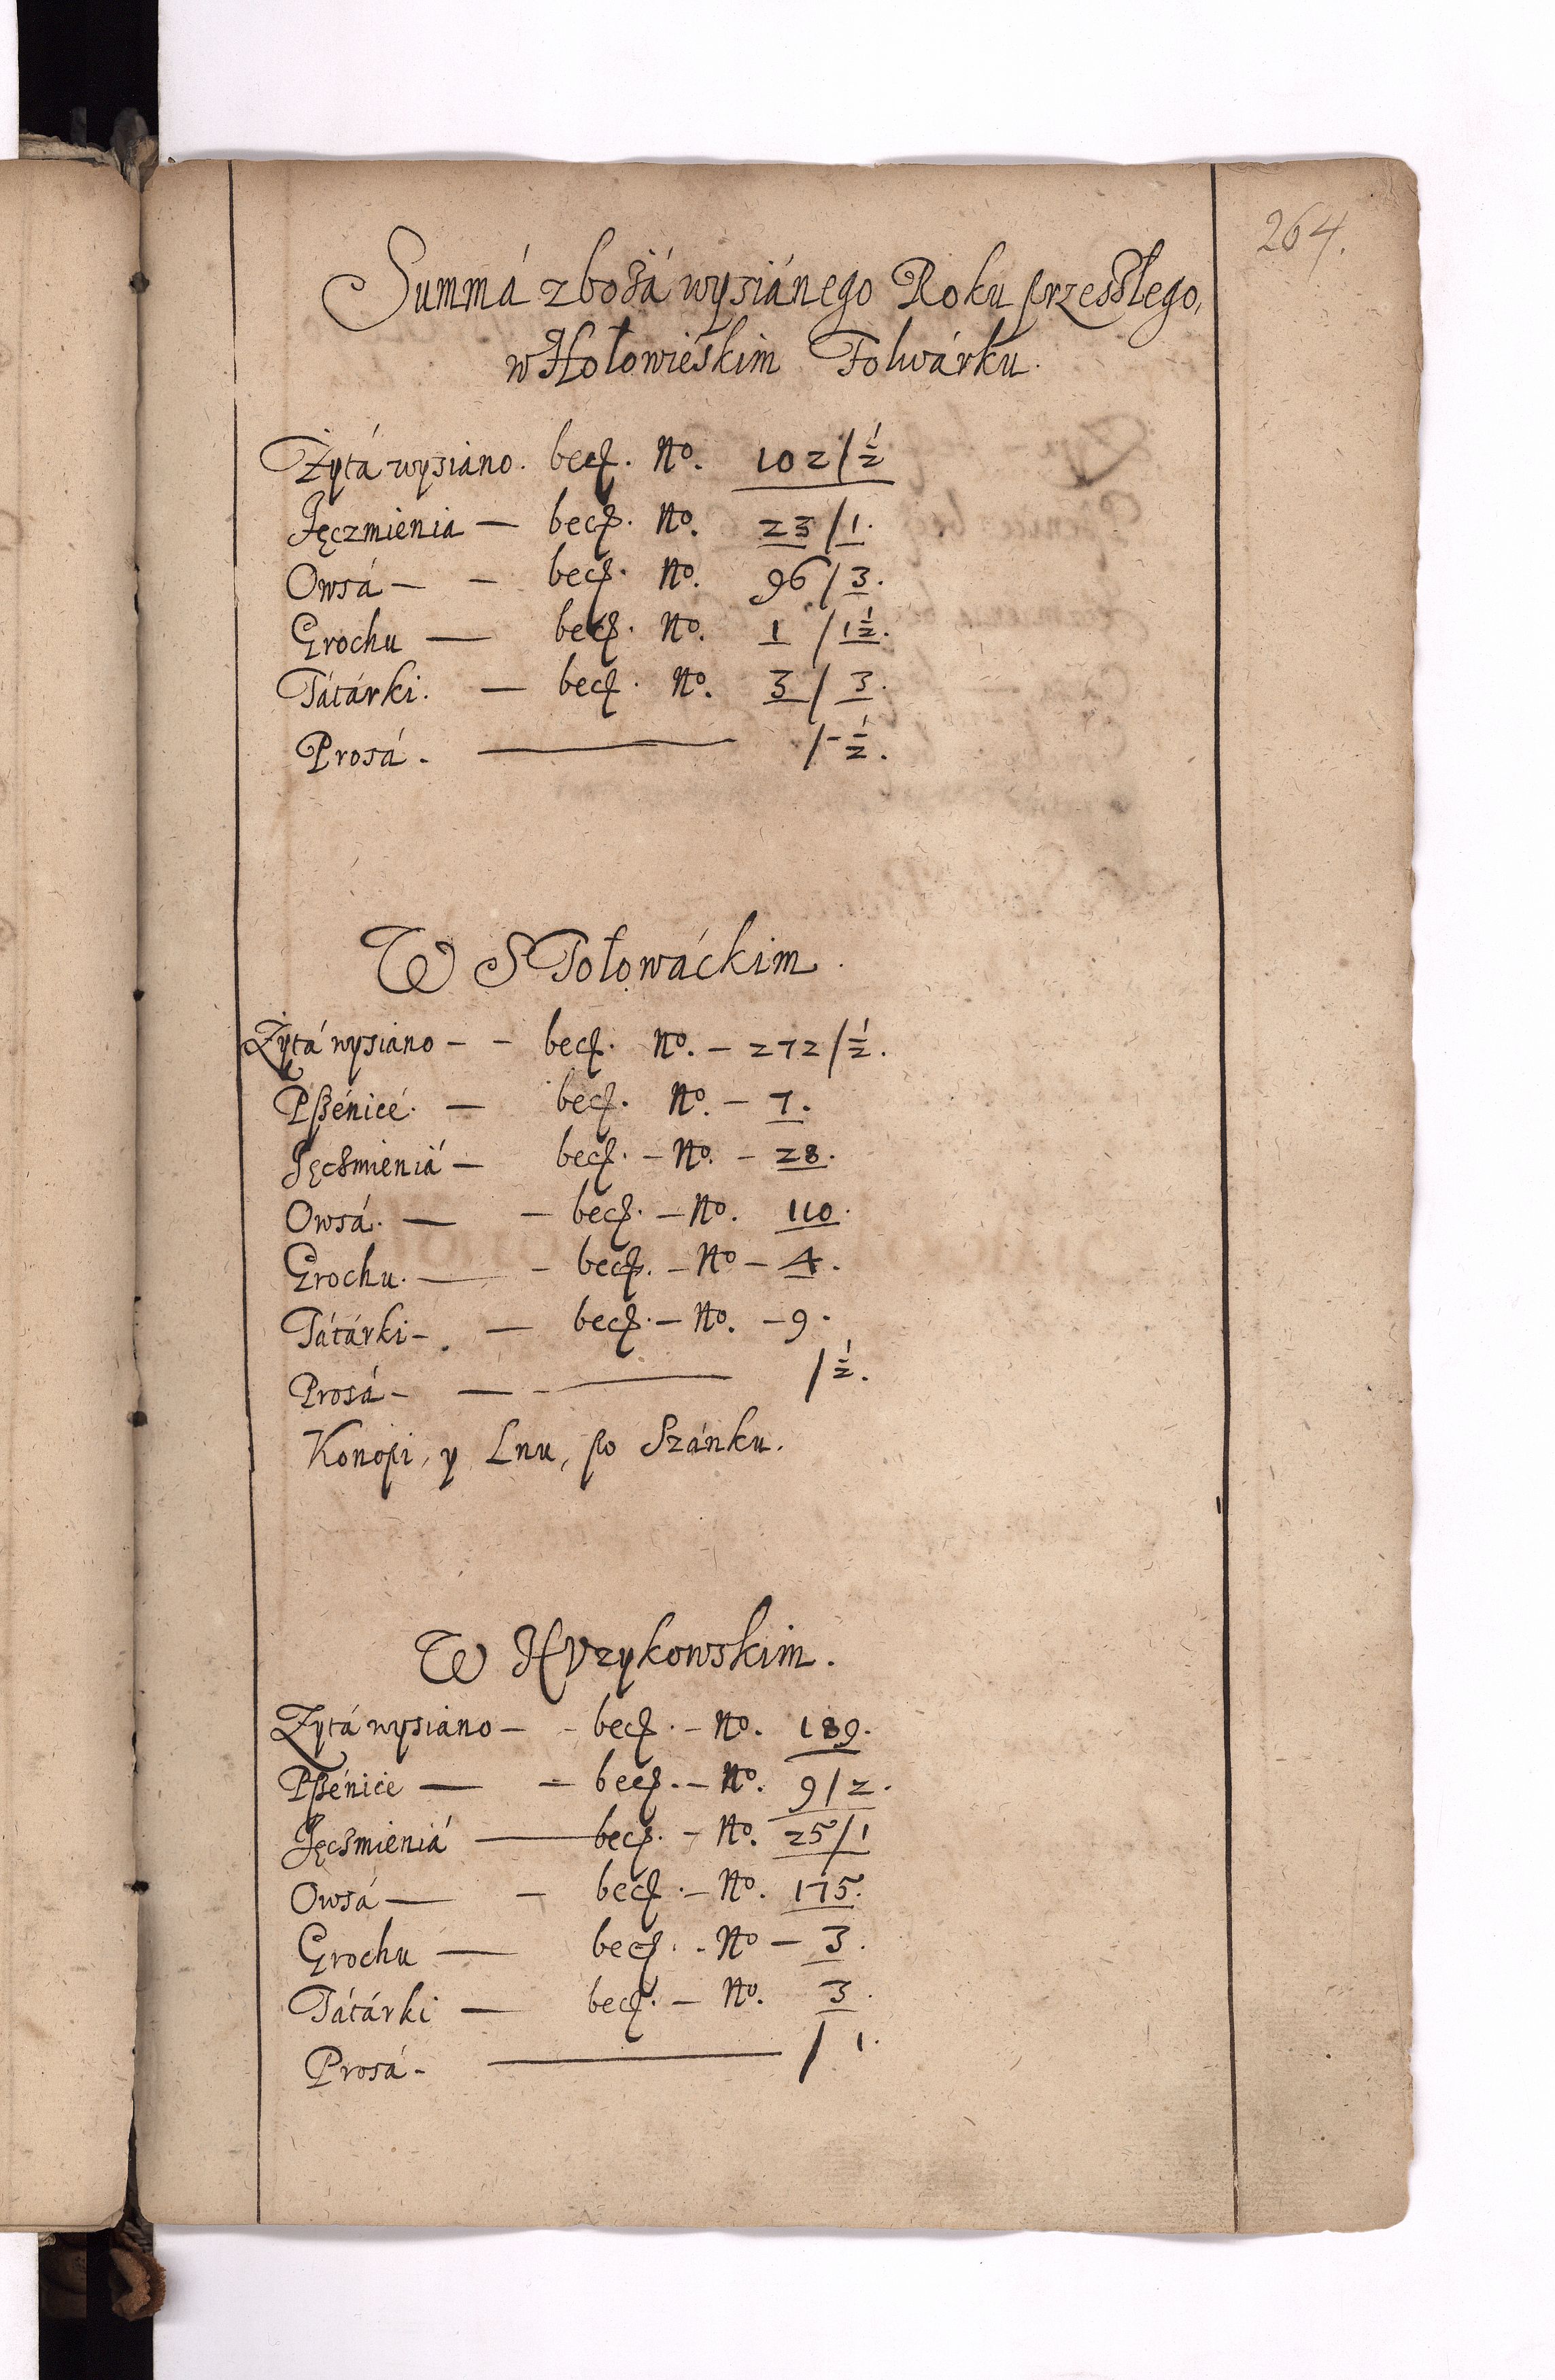 264.
Summá zbożá wysiánego Roku przeszłego,
w Hołowieskim Folwárku.
Żytá wysiano. becz. No. 102/½
Jęczmienia — becz. No. 23/1.
Owsá — — becz. No. 96/3.
Grochu — becz. No. 1/1½.
Tátárki. — becz. No. 3/3.
Prosá. — /-½.
W STołowáckim.
Żytá wysiano - - becz. No. - 272/½.
Pszenice. — becz. No. - 7.
Jęczmieniá — becz. - No. - 28.
Owsá. — - becz. - No. 110.
Grochu. — - becz. - No - 4.
Tátárki - . — becz. - No. - 9.
Prosá - — - — /½.
Konopi, y Lnu, po Szánku.
W HVrykowskim.
Żytá wysiano - - becz. - No. 189.
Pszenice — - becz. - No. 9/2.
Jęczmieniá — becz. - No. 25/1
Owsá — - becz. - No. 175.
Grochu — becz. - No - 3.
Tátárki — becz. - No. 3.
Prosá - — / 1.